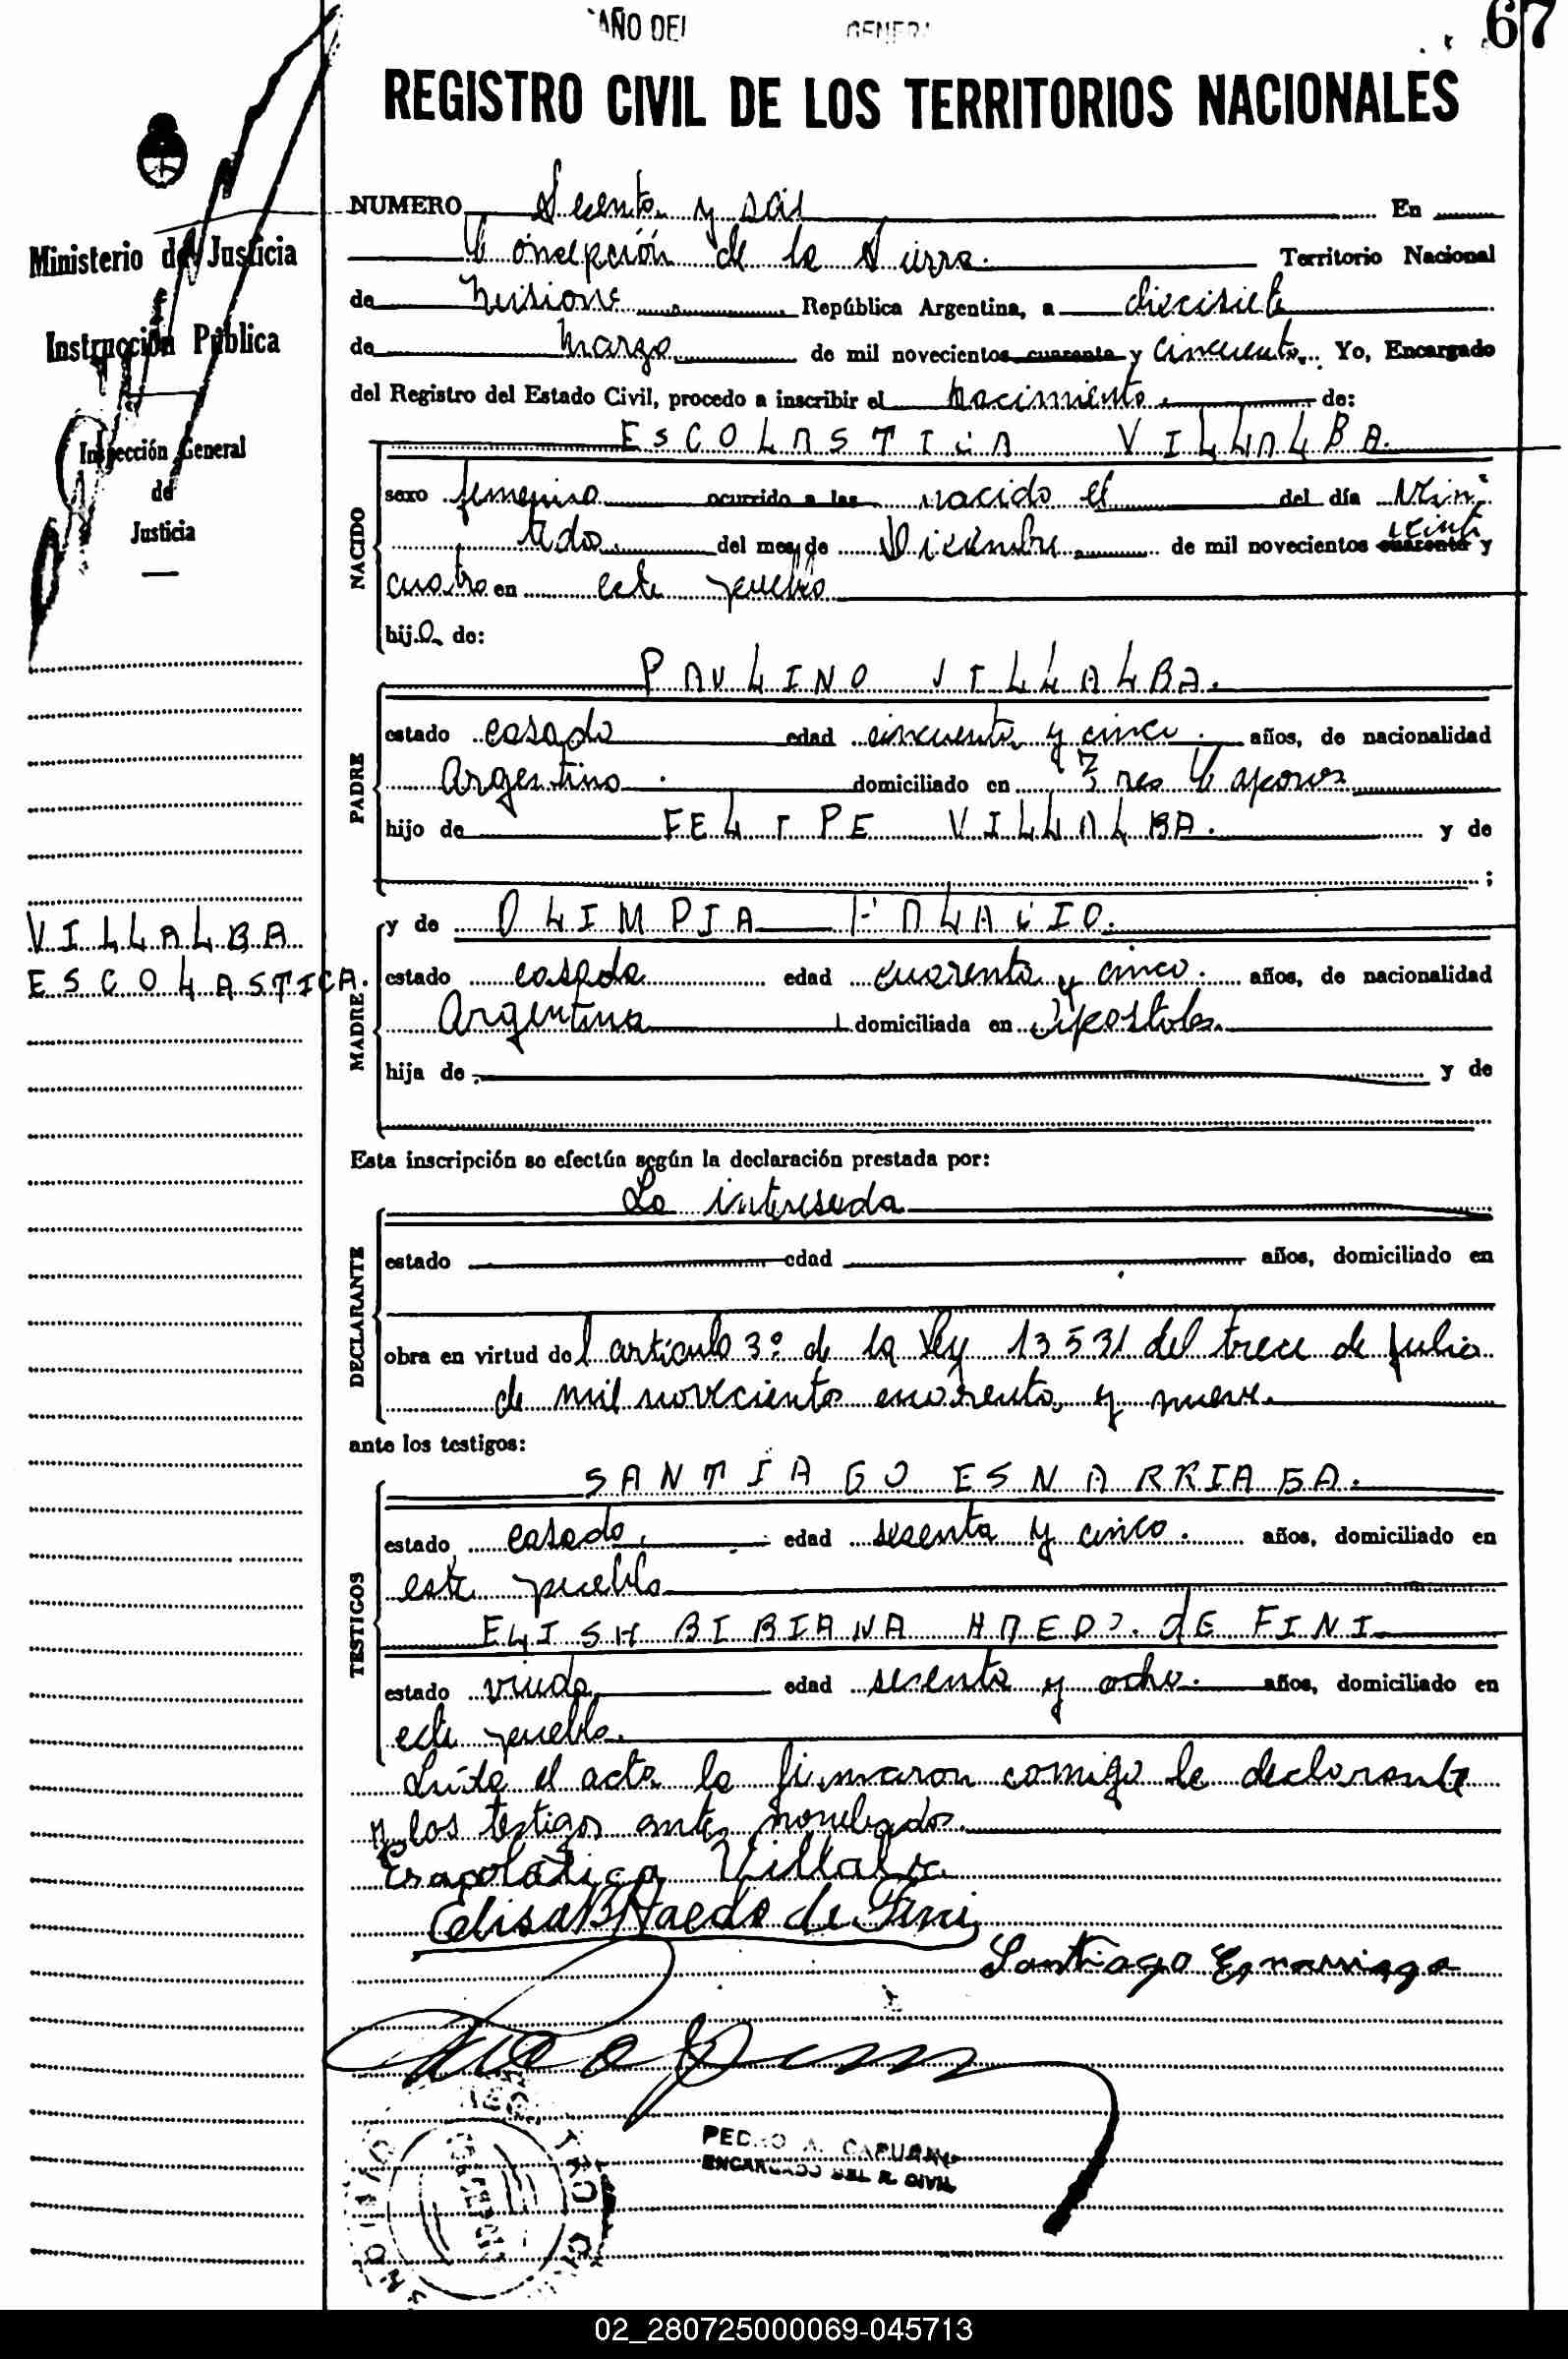 67
REGISTRO CIVIL DE LOS TERRITORIOS NACIONALES
Ministerio de Justicia
Instrucción Pública
Inspección General
de
Justicia
VILLALBA
ESCOLASTICA.
NUMERO Sesenta y seis En
Concepción de la Sierra. Territorio Nacional
de Misiones República Argentina, a diecisiete
de Marzo de mil novecientos cuarenta y cincuenta. Yo, Encargado
del Registro del Estado Civil, procedo a inscribir el nacimiento. de:
ESCOLASTICA VILLALBA.
NACIDO
sexo femenino ocurrido a las nacido el del día vein
tidos del mes de Diciembre de mil novecientos cuarenta veinti y
cuatro en este pueblo
hija de:
PAULINO VILLALBA.
PADRE
estado casado edad cincuenta y cinco. años, de nacionalidad
Argentino. domiciliado en Tres Capones
hijo de FELIPE VILLALBA. y de
;
y de OLIMPIA
MADRE
estado casada edad cuarenta y cinco. años, de nacionalidad
Argentina domiciliada en Apostoles.
hija de y de
Esta inscripción se efectúa según la declaración prestada por:
La interesada
DECLARANTE
estado edad años, domiciliado en
obra en virtud del artículo 3º de la Ley 13531 del trece de Julio
de mil novecientos cuarenta y nueve.
ante los testigos:
SANTIAGO ESNARRIAGA.
TESTIGOS
estado casado, edad sesenta y cinco. años, domiciliado en
este pueblo
ELISA BIBIANA HAEDO. DE FINI
estado viuda edad sesenta y ocho. años, domiciliado en
este pueblo.
Leída el acta la firmaron comigo la declarante
y los testigos antes nombrados.
Escolatica Villalba
Elisa B Haedo de Fini
Santiago Esnarriaga
PEDRO A.
ENCARGADO DEL R. CIVIL
02_280725000069-045713